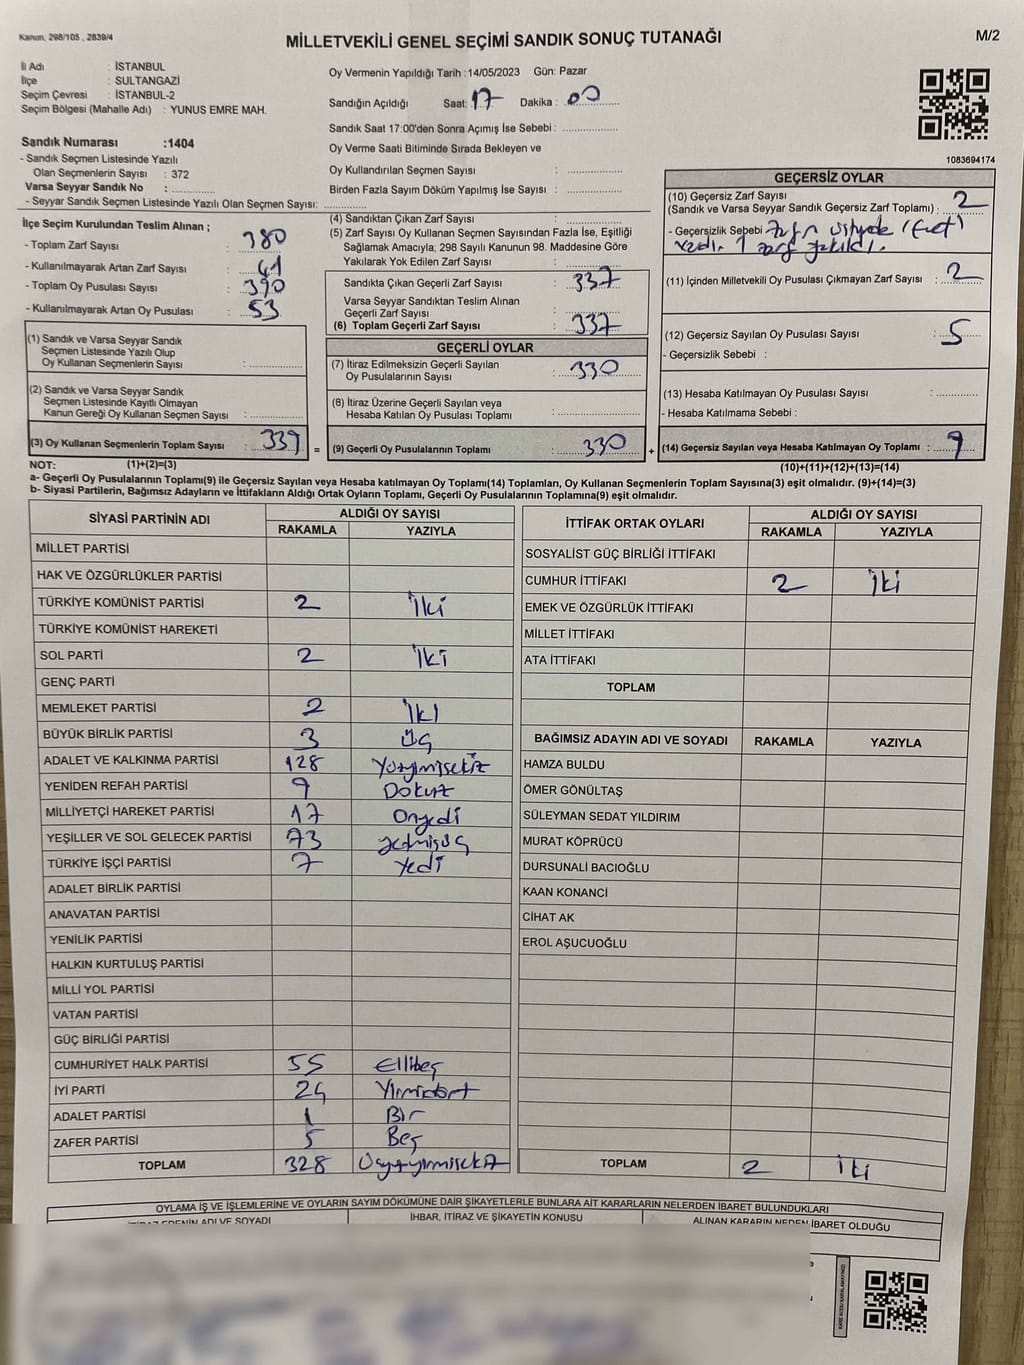 Kanun: 298/105 , 2839/4
MİLLETVEKİLİ GENEL SEÇİMİ SANDIK SONUÇ TUTANAĞI
M/2
İl Adı : İSTANBUL
İlçe : SULTANGAZİ
Seçim Çevresi : İSTANBUL-2
Seçim Bölgesi (Mahalle Adı) : YUNUS EMRE MAH.
Sandık Numarası :1404
- Sandık Seçmen Listesinde Yazılı
Olan Seçmenlerin Sayısı : 372
Varsa Seyyar Sandık No :
- Seyyar Sandık Seçmen Listesinde Yazılı Olan Seçmen Sayısı:
Oy Vermenin Yapıldığı Tarih :14/05/2023 Gün: Pazar
Sandığın Açıldığı Saat: 17 Dakika : 00
Sandık Saat 17:00'den Sonra Açımış İse Sebebi :
Oy Verme Saati Bitiminde Sırada Bekleyen ve
Oy Kullandırılan Seçmen Sayısı :
Birden Fazla Sayım Döküm Yapılmış İse Sayısı :
1083694174
İlçe Seçim Kurulundan Teslim Alınan ;
- Toplam Zarf Sayısı : 380
- Kullanılmayarak Artan Zarf Sayısı : 41
- Toplam Oy Pusulası Sayısı : 390
- Kullanılmayarak Artan Oy Pusulası : 53
(1) Sandık ve Varsa Seyyar Sandık
Seçmen Listesinde Yazılı Olup
Oy Kullanan Seçmenlerin Sayısı :
(2) Sandık ve Varsa Seyyar Sandık
Seçmen Listesinde Kayıtlı Olmayan
Kanun Gereği Oy Kullanan Seçmen Sayısı :
(3) Oy Kullanan Seçmenlerin Toplam Sayısı : 339 =
(4) Sandıktan Çıkan Zarf Sayısı :
(5) Zarf Sayısı Oy Kullanan Seçmen Sayısından Fazla İse, Eşitliği
Sağlamak Amacıyla; 298 Sayılı Kanunun 98. Maddesine Göre
Yakılarak Yok Edilen Zarf Sayısı :
Sandıkta Çıkan Geçerli Zarf Sayısı : 337
Varsa Seyyar Sandıktan Teslim Alınan
Geçerli Zarf Sayısı :
(6) Toplam Geçerli Zarf Sayısı : 337
GEÇERLİ OYLAR
(7) İtiraz Edilmeksizin Geçerli Sayılan
Oy Pusulalarının Sayısı : 330
(8) İtiraz Üzerine Geçerli Sayılan veya
Hesaba Katılan Oy Pusulası Toplamı :
(9) Geçerli Oy Pusulalarının Toplamı : 330 +
GEÇERSİZ OYLAR
(10) Geçersiz Zarf Sayısı
(Sandık ve Varsa Seyyar Sandık Geçersiz Zarf Toplamı) : 2
- Geçersizlik Sebebi
1 zarf yakıldı.
(11) İçinden Milletvekili Oy Pusulası Çıkmayan Zarf Sayısı : 2
(12) Geçersiz Sayılan Oy Pusulası Sayısı : 5
- Geçersizlik Sebebi :
(13) Hesaba Katılmayan Oy Pusulası Sayısı :
- Hesaba Katılmama Sebebi :
(14) Geçersiz Sayılan veya Hesaba Katılmayan Oy Toplamı : 9
NOT: (1)+(2)=(3)
(10)+(11)+(12)+(13)=(14)
a- Geçerli Oy Pusulalarının Toplamı(9) ile Geçersiz Sayılan veya Hesaba katılmayan Oy Toplamı(14) Toplamları, Oy Kullanan Seçmenlerin Toplam Sayısına(3) eşit olmalıdır. (9)+(14)=(3)
b- Siyasi Partilerin, Bağımsız Adayların ve İttifakların Aldığı Ortak Oyların Toplamı, Geçerli Oy Pusulalarının Toplamına(9) eşit olmalıdır.
SİYASİ PARTİNİN ADI ALDIĞI OY SAYISI
RAKAMLA YAZIYLA
MİLLET PARTİSİ
HAK VE ÖZGÜRLÜKLER PARTİSİ
TÜRKİYE KOMÜNİST PARTİSİ 2 İki
TÜRKİYE KOMÜNİST HAREKETİ
SOL PARTİ 2 İki
GENÇ PARTİ
MEMLEKET PARTİSİ 2 İki
BÜYÜK BİRLİK PARTİSİ 3 Üç
ADALET VE KALKINMA PARTİSİ 128 Yüzyirmisekiz
YENİDEN REFAH PARTİSİ 9 Dokuz
MİLLİYETÇİ HAREKET PARTİSİ 17 Onyedi
YEŞİLLER VE SOL GELECEK PARTİSİ 73 yetmişüç
TÜRKİYE İŞÇİ PARTİSİ 7 Yedi
ADALET BİRLİK PARTİSİ
ANAVATAN PARTİSİ
YENİLİK PARTİSİ
HALKIN KURTULUŞ PARTİSİ
MİLLİ YOL PARTİSİ
VATAN PARTİSİ
GÜÇ BİRLİĞİ PARTİSİ
CUMHURİYET HALK PARTİSİ 55 Ellibeş
İYİ PARTİ 24 Yirmidört
ADALET PARTİSİ 1 Bir
ZAFER PARTİSİ 5 Beş
TOPLAM 328 Üçyüzyirmisekiz
İTTİFAK ORTAK OYLARI ALDIĞI OY SAYISI
RAKAMLA YAZIYLA
SOSYALİST GÜÇ BİRLİĞİ İTTİFAKI
CUMHUR İTTİFAKI 2 İki
EMEK VE ÖZGÜRLÜK İTTİFAKI
MİLLET İTTİFAKI
ATA İTTİFAKI
TOPLAM
BAĞIMSIZ ADAYIN ADI VE SOYADI RAKAMLA YAZIYLA
HAMZA BULDU
ÖMER GÖNÜLTAŞ
SÜLEYMAN SEDAT YILDIRIM
MURAT KÖPRÜCÜ
DURSUNALİ BACIOĞLU
KAAN KONANCİ
CİHAT AK
EROL AŞUCUOĞLU
TOPLAM 2 İki
OYLAMA İŞ VE İŞLEMLERİNE VE OYLARIN SAYIM DÖKÜMÜNE DAİR ŞİKAYETLERLE BUNLARA AİT KARARLARIN NELERDEN İBARET BULUNDUKLARI
İTİRAZ EDENİN ADI VE SOYADI İHBAR, İTİRAZ VE ŞİKAYETİN KONUSU ALINAN KARARIN NEDEN İBARET OLDUĞU